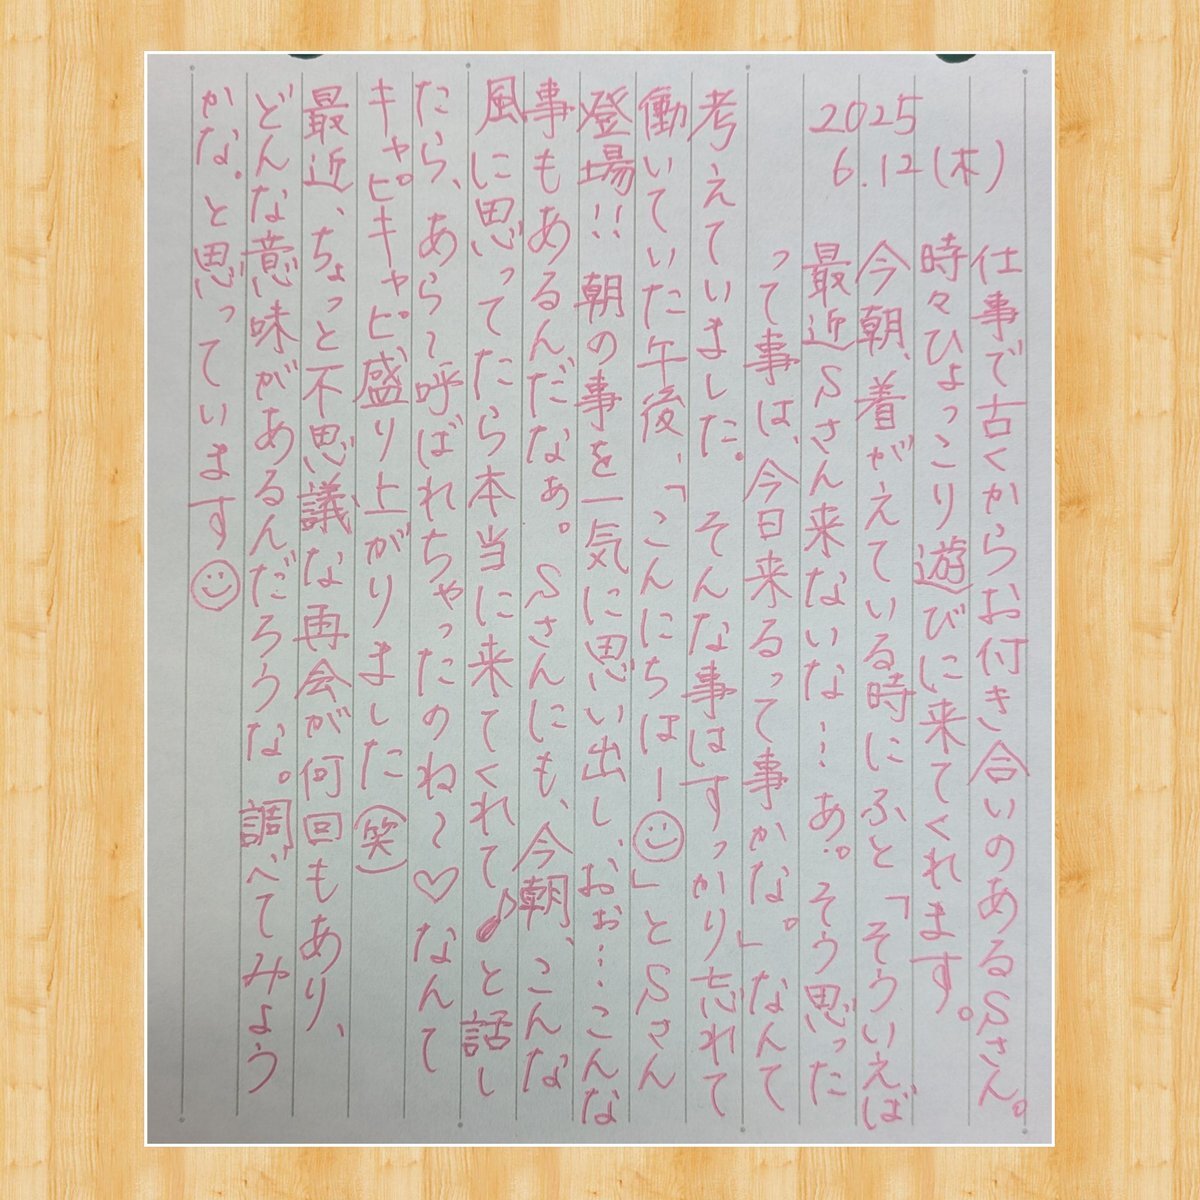 2025
6.12(木)
仕事で古くからお付き合いのあるSさん。
時々ひょっこり遊びに来てくれます。
今朝、着がえている時にふと「そういえば
最近Sさん来ないな…あ。そう思った
って事は、今日来るって事かな。」なんて
考えていました。そんな事はすっかり忘れて
働いていた午後、「こんにちはー☺」とSさん
登場!! 朝の事を一気に思い出し、おぉ…こんな
事もあるんだなぁ。Sさんにも、今朝、こんな
風に思ってたら本当に来てくれて♪と話し
たら、あら〜呼ばれちゃったのね〜♡なんて
キャピキャピ盛り上がりました(笑)
最近、ちょっと不思議な再会が何回もあり、
どんな意味があるんだろうな。調べてみよう
かな。と思っています☺